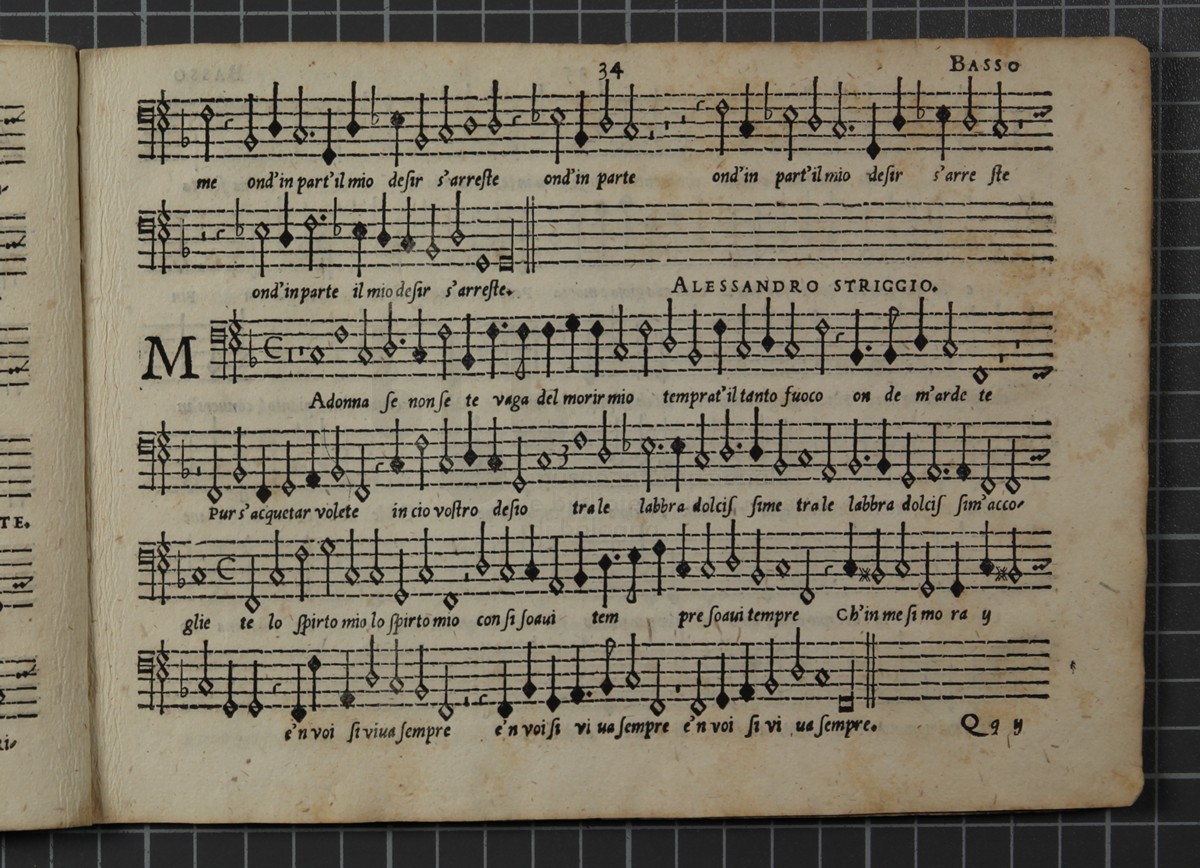 34
BASSO
me ond'in part'il mio desir s'arreste ond'in parte ond'in part'il mio desir s'arre ste
ond'in parte il mio desir s'arreste.
ALESSANDRO STRIGGIO.
M
Adonna se non se te vaga del morir mio temprat'il tanto fuoco on de m'arde te
Pur s'acquetar volete in cio vostro desio tra le labbra dolcis sime tra le labbra dolcis sim'acco-
glie te lo spirto mio lo spirto mio con si soaui tem pre soaui tempre Ch'in me si mo ra y
e'n voi si viua sempre e'n voi si vi ua sempre e'n voi si vi ua sempre.
Qq y
TE.